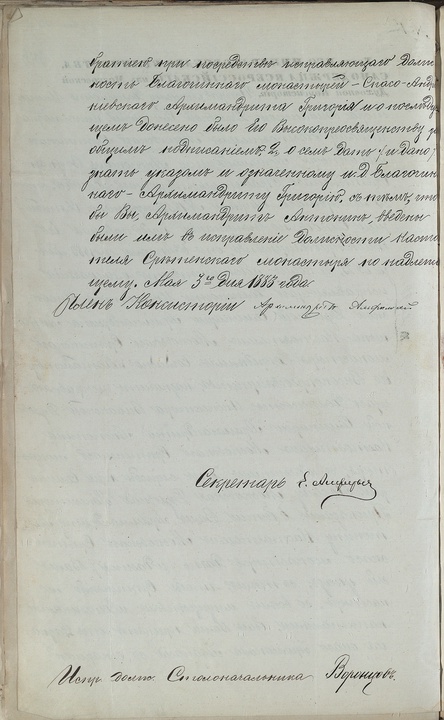 братіею, при посредствѣ исправляющаго долж
ность Благочиннаго монастырей – Спасо-Андро
ніевскаго Архимандрита Григорія и о послѣдую
щемъ донесено было Его Высокопреосвященству за
общимъ подписаніемъ, 2, о семъ дать (и дано)
знать указомъ и означенному и. д. Благочин
наго – Архимандриту Григорію, съ тѣмъ, что
бы Вы, Архимандритъ Антонинъ, введены
были имъ въ исправленіе должности Насто
теля Срѣтенскаго монастыря по надлежа
щему. Мая 3го дня 1883 года
Членъ Консисторіи Архимандритъ
Секретарь
Испр. долж. Столоначальника Воронцовъ.